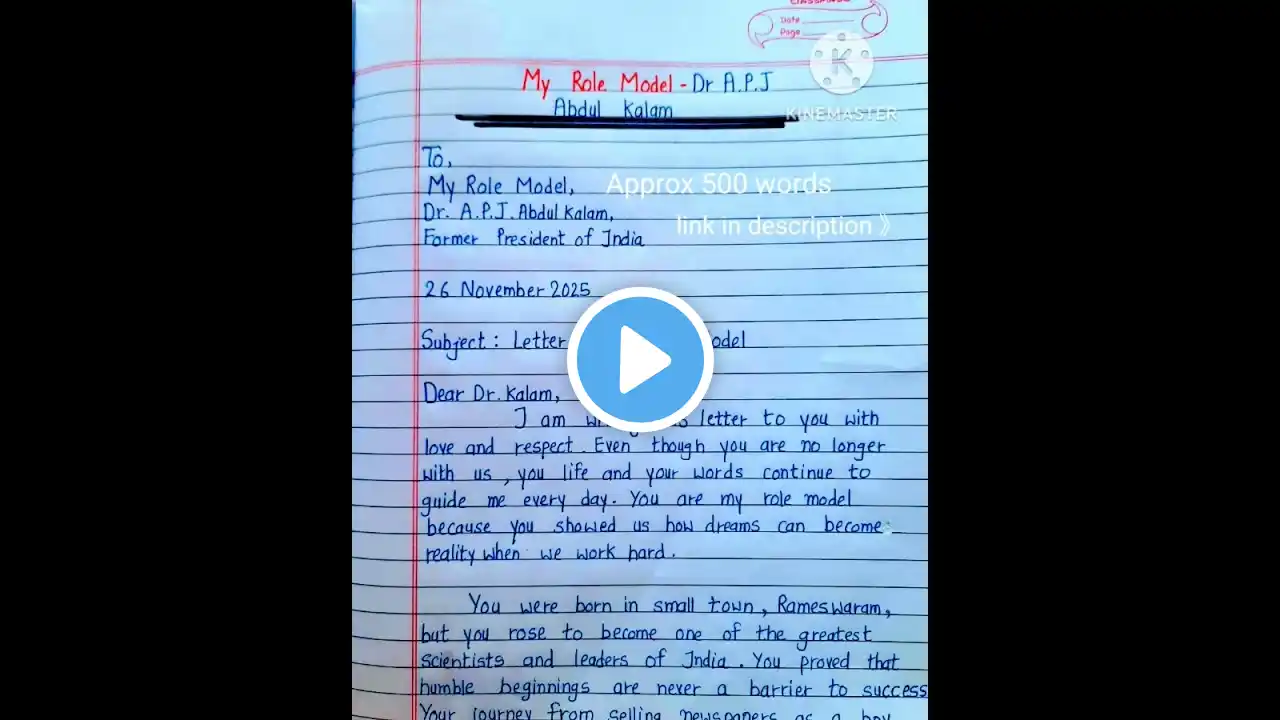 CLASSMATE
Date
Page
My Role Model - Dr A.P.J
Abdul Kalam
KINEMASTER
To,
My Role Model,
Approx 500 words
Dr. A.P.J. Abdul Kalam,
link in description 》
Former President of India
26 November 2025
Subject : Letter odel
Dear Dr. Kalam,
I am letter to you with
love and respect. Even though you are no longer
with us, you life and your words continue to
guide me every day. You are my role model
because you showed us how dreams can become
reality when we work hard.
You were born in small town, Rameswaram,
but you rose to become one of the greatest
scientists and leaders of India. You proved that
humble beginnings are never a barrier to success
Your journey from selling newspapers as a boy